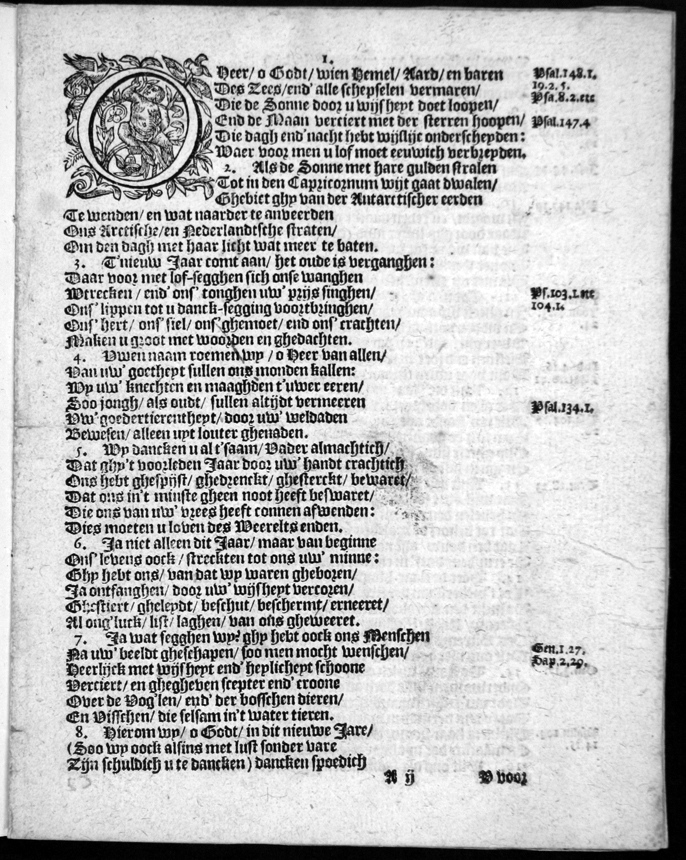 1.
O Heer/ o Godt/ wien Hemel/ Aard/ en baren
Des Zees/ end' alle schepselen vermaren/
Die de Sonne door u wijsheyt doet loopen/
End de Maan verciert met der sterren hoopen/
Die dagh end' nacht hebt wijslijc onderscheyden:
Waer voor men u lof moet eeuwich verbreyden.
2. Als de Sonne met hare gulden stralen
Tot in den Capricornum wijt gaat dwalen/
Ghebiet ghy van der Antarctischer eerden
Te wenden/ en wat naarder te anveerden
Ons Arctische/ en Nederlandtsche straten/
Om den dagh met haar licht wat meer te baten.
3. T'nieuw Jaar comt aan/ het oude is verganghen:
Daar voor met lof-segghen sich onse wanghen
Wtrecken/ end' ons' tonghen uw' prijs singhen/
Ons' lippen tot u danck-segging voortbringhen/
Ons' hert/ ons' siel/ ons' ghemoet/ end ons' crachten/
Maken u groot met woorden en ghedachten.
4. Uwen naam roemen wy/ o Heer van allen/
Van uw' goetheyt sullen ons monden kallen:
Wy uw' knechten en maaghden t'uwer eeren/
Soo jongh/ als oudt/ sullen altijdt vermeeren
Uw' goedertierentheyt/ door uw' weldaden
Bewesen/ alleen uyt louter ghenaden.
5. Wy dancken u al t'saam/ Vader almachtich/
Dat ghy't voorleden Jaar door uw' handt crachtich
Ons hebt ghespijst/ ghedrenckt/ ghesterckt/ bewaret/
Dat ons in't minste gheen noot heeft beswaret/
Die ons van uw' vrees heeft connen afwenden:
Dies moeten u loven des Weerelts enden.
6. Ja niet alleen dit Jaar/ maar van beginne
Ons' levens oock/ streckten tot ons uw' minne:
Ghy hebt ons/ van dat wy waren gheboren/
Ja ontfanghen/ door uw' wijsheyt vercoren/
Ghestiert/ gheleydt/ beschut/ beschermt/ erneeret/
Al ong'luck/ list/ laghen/ van ons gheweeret.
7. Ja wat segghen wy? ghy hebt oock ons Menschen
Na uw' beeldt gheschapen/ soo men mocht wenschen/
Heerlijck met wijsheyt end' heylicheyt schoone
Verciert/ en ghegheven scepter end' croone
Over de Vog'len/ end' der bosschen dieren/
En Visschen/ die selsam in't water tieren.
8. Hierom wy/ o Godt/ in dit nieuwe Jare/
(Soo wy oock alsins met lust sonder vare
Zijn schuldich u te dancken) dancken spoedich
A ij
V voor
Psal.148.1.
19.2.5.
Psa.8.2.etc
Psal.147.4
Ps.103.1.etc
104.1.
Psal.134.1.
Gen.1.27.
Sap.2.29.